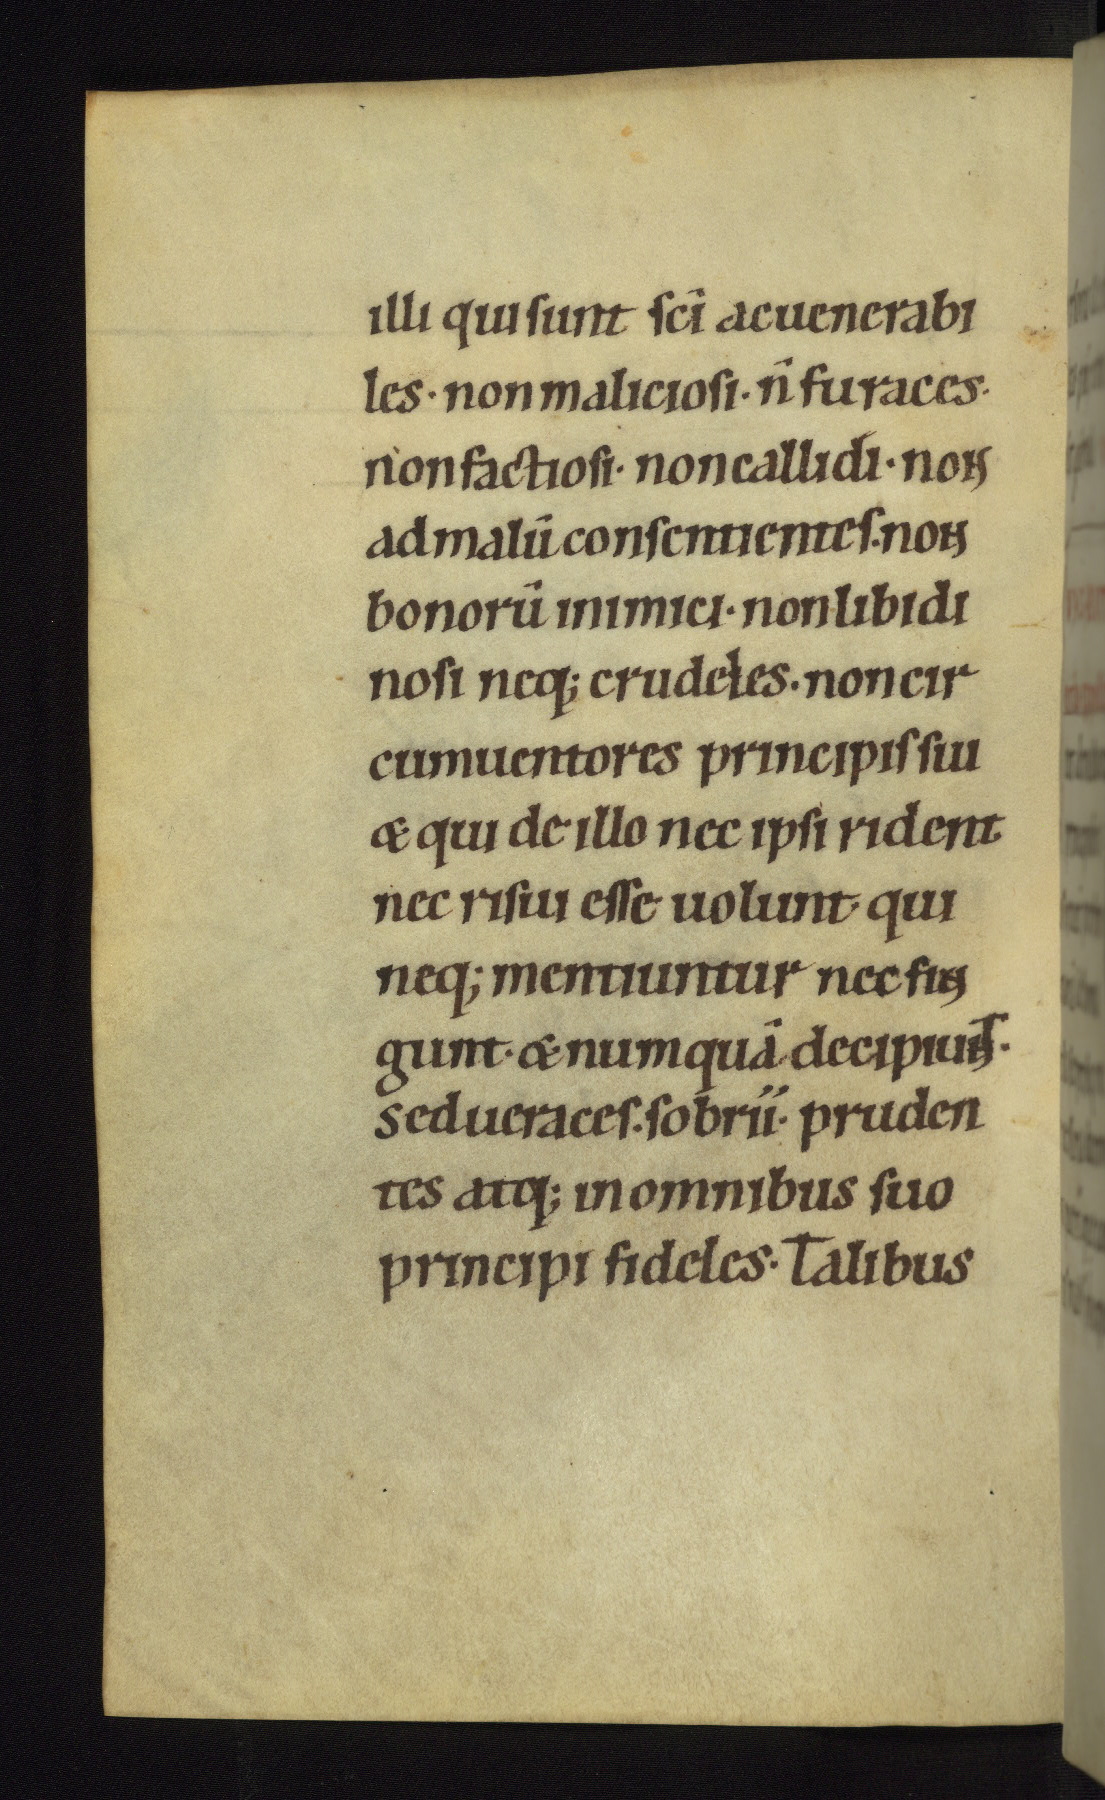 illi qui sunt sc̄i ac uenerabi
les · non maliciosi · n̄ furaces ·
non factiosi · non callidi · non
ad malū consentientes. non
bonorū inimici · non libidi
nosi neq; crudeles · non cir
cumuentores principis sui
& qui de illo nec ipsi rident
nec risui esse uolunt · qui
neq; mentiuntur nec fin
gunt · & numquā decipiunt ·
sed ueraces. sobrii · pruden
tes atq; in omnibus suo
principi fideles · Talibus